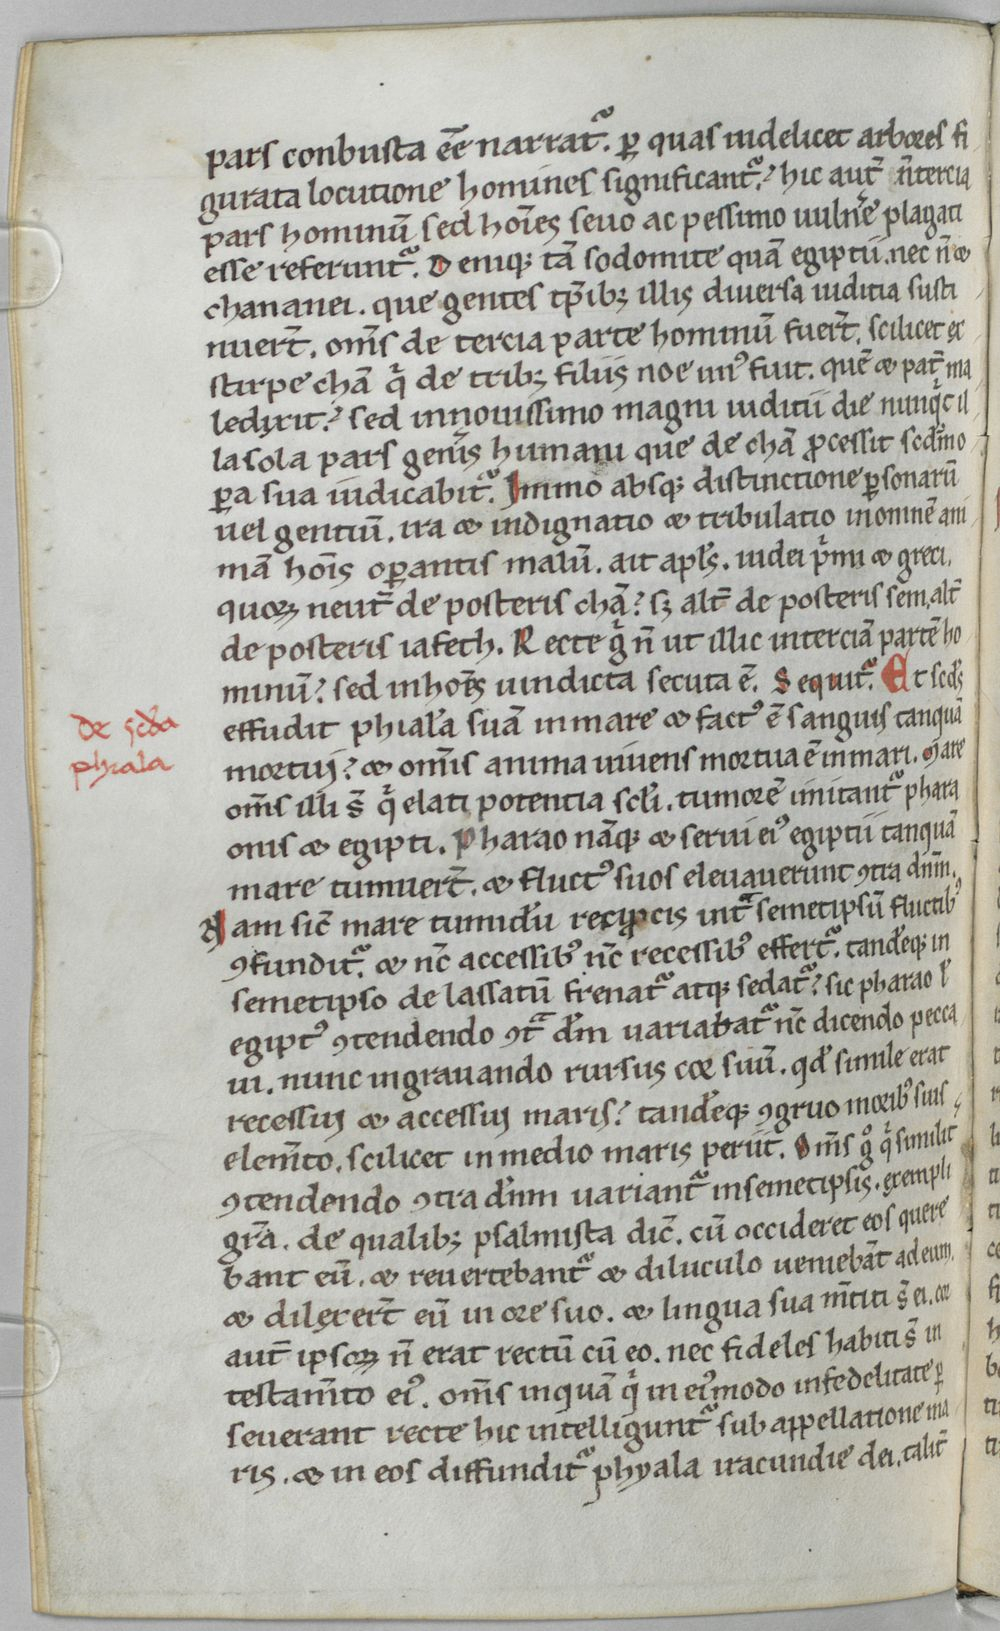 pars conbusta ēe narrat᷑. ꝑ quas uidelicet arbores fi
gurata locutione homines significant᷑. hic aut̄ n̄ tercia
pars hominū sed hōies seuo ac pessimo uuln̄e plagati
esse referunt᷑. Deniqꝫ tā sodomite quā egiptii. nec n̄ ⁊
chananei. que gentes tp̄ibꝫ illis diuersa iuditia susti
nuer̄t. om̄s de tercia parte hominū fuer̄t. scilicet ex
stirpe chā qͥ de tribꝫ filiis noe unꝰ fuit. quē ⁊ pat̄ ma
ledixit? sed in nouissimo magni iuditii die nunqͥd il
la sola pars gen̄is humani que de chā ꝓcessit scd̄m o
ꝑa sua iudicabit᷑. Immo absqꝫ distinctione ꝑsonarū
uel gentiū. ira ⁊ indignatio ⁊ tribulatio in omnē ani
mā hōis oꝑantis malū. ait apl̄s. iudei pͥmi ⁊ greci.
quoꝝ neut̄ de posteris chā? sꝫ alt̄ de posteris sem. alt̄
de posteris iafeth. Recte gͥ n̄ ut illic in terciā partē ho
minū? sed in hōies uindicta secuta ē. Sequit᷑. Et scd̄s
effudit phialā suā in mare ⁊ factꝰ ē sanguis tanquā
mortui? ⁊ om̄is anima uiuens mortua ē in mari. Mare
om̄s illi s̄ qͥ elati potentia scl̄i. tumorē imitant᷑ phara
onis ⁊ egipti. Pharao nāqꝫ ⁊ serui eiꝰ egiptii tanquā
mare tumuer̄t. ⁊ fluctꝰ suos eleuauerunt ꝯtra dn̄m.
Nam sic̄ mare tumidū reciꝓcis int᷑ semetipsū fluctibꝰ
ꝯfundit᷑. ⁊ nc̄ accessibꝰ nc̄ recessibꝰ effert᷑. tandēqꝫ in
semetipso delassatū frenat᷑ atqꝫ sedat᷑? sic pharao ł
egiptꝰ ꝯtendendo ꝯt᷑ dm̄ uariabat᷑ nc̄ dicendo pecca
ui. nunc ingrauando rursus cor suū. qd̄ simile erat
recessui ⁊ accessui maris? tandēqꝫ ꝯgruo moribꝰ suis
elem̄to. scilicet in medio maris periit. Om̄s gͦ qͥ similit̄
ꝯtendendo ꝯtra dn̄m uariant᷑ in semetipsis. exempli
gr̄a. de qualibꝫ psalmista dic̄. cū occideret eos quere
bant eū. ⁊ reuertebant᷑ ⁊ diluculo ueniebāt ad eum.
⁊ dilexer̄t eū in ore suo. ⁊ lingua sua m̄titi s̄ ei. cor
aut̄ ipsoꝝ n̄ erat rectū cū eo. nec fideles habiti s̄ in
testam̄to eiꝰ. om̄s inquā qͥ in eiꝰmodo infedelitate ꝑ
seuerant recte hic intelligunt᷑ sub appellatione ma
ris. ⁊ in eos diffundit᷑ phyala iracundie dei. talit̄
de scd̄a
phiala